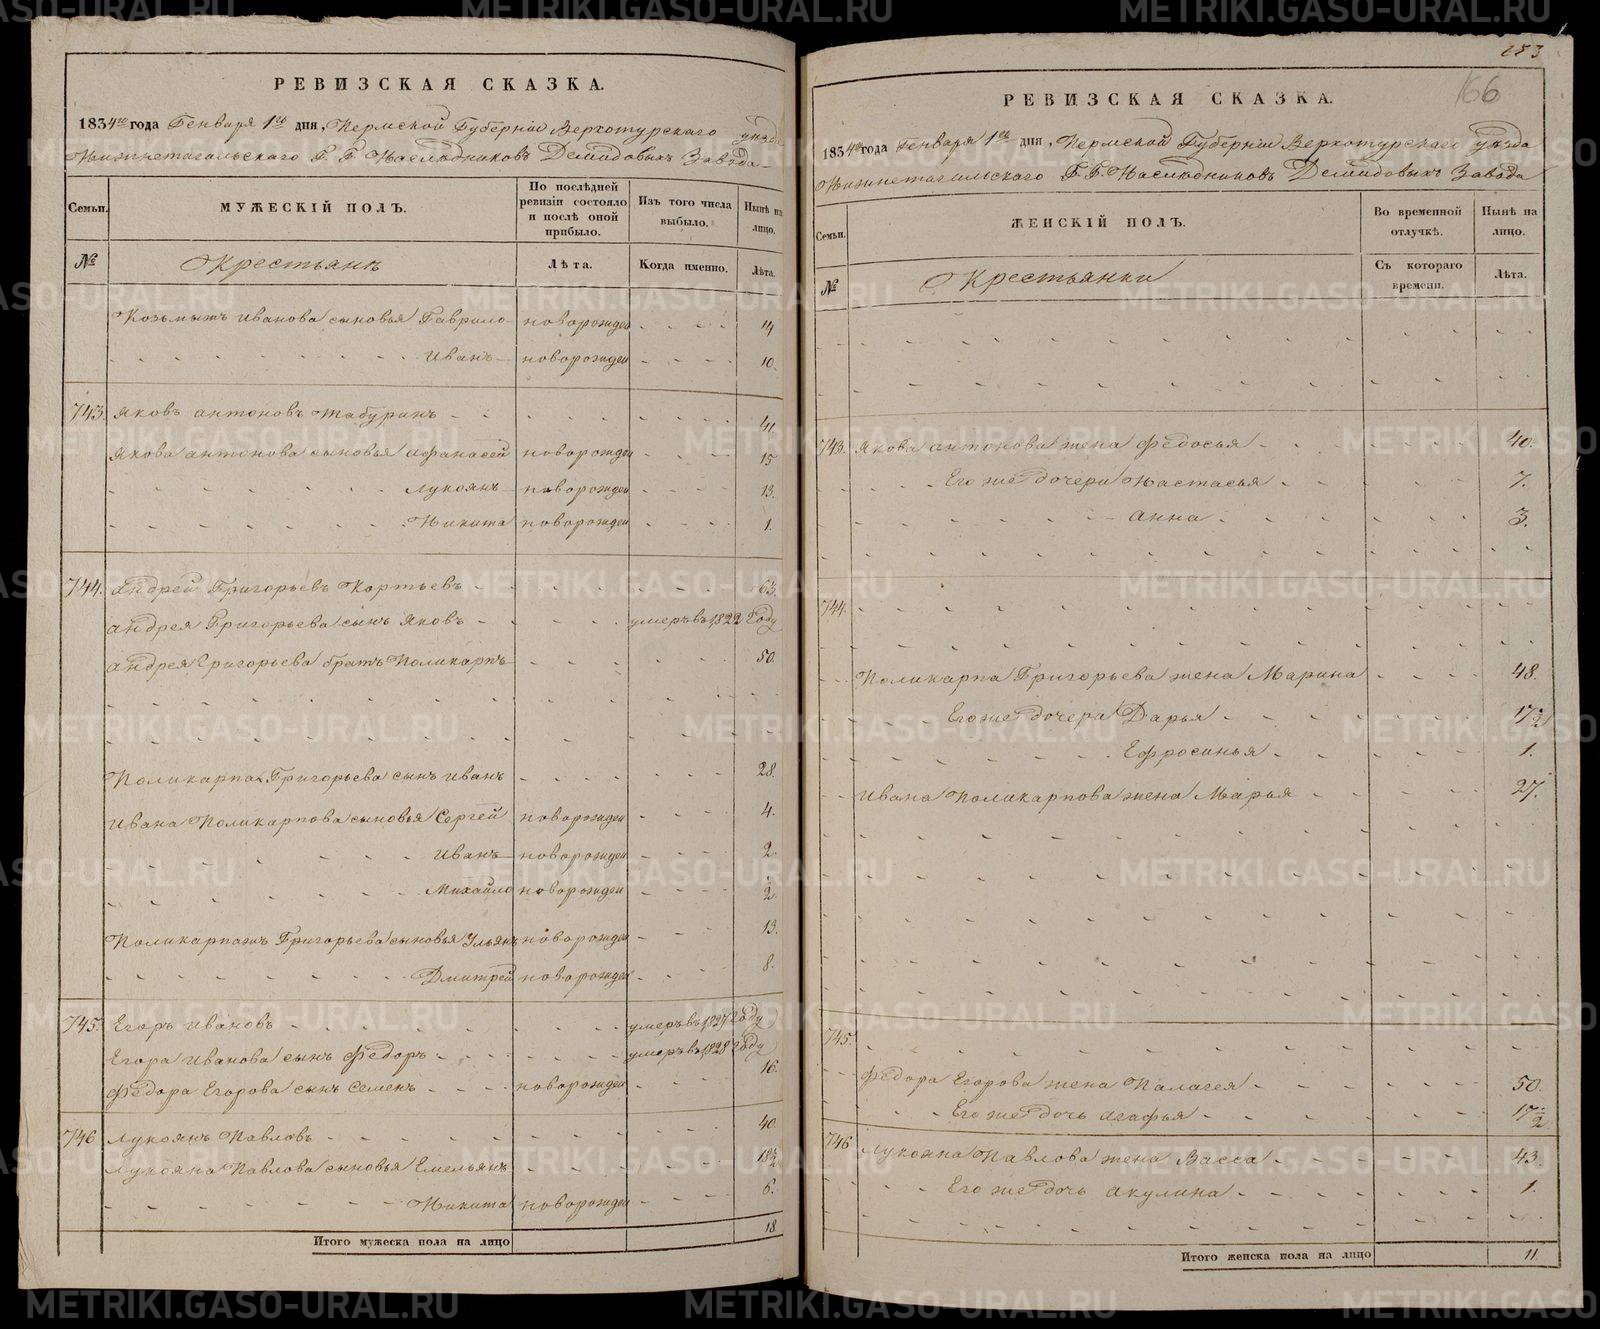 РЕВИЗСКАЯ СКАЗКА.
1834го года Генваря 1го дня, Пермской Губерніи Верхотурскаго уѣзда
Нижнетагильскаго Г. Г. Наслѣдниковъ Демидовыхъ Завода
Семьи.
МУЖЕСКІЙ ПОЛЪ.
По послѣдней ревизіи состояло и послѣ оной прибыло.
Изъ того числа выбыло.
Нынѣ на лицо.
№
Крестьянъ
Лѣта.
Когда именно.
Лѣта.
Козьмытъ Иванова сыновья Гаврило новорожден 14
Иванъ новорожден 10.
743. Яковъ Антоновъ Табуринъ 41.
Якова Антонова сыновья Афанасей новорожден 15
Лукоянъ новорожден 13.
Никита новорожден 1.
744. Андрей Григорьевъ 63.
Андрея Григорьева сынъ Яковъ умеръ въ 1822 году
Андрея Григорьева братъ Поликарпъ 50.
Поликарпа Григорьева сынъ Иванъ 28.
Ивана Поликарпова сыновья Сергей новорожден 4.
Иванъ новорожден 2.
Михайло новорожден
Григорьева сыновья Ульянъ новорожден 13.
Дмитрей новорожден 8.
745. Егоръ Ивановъ умеръ въ 1827 году
Егора Иванова сынъ Федоръ умеръ въ 1828 году
Федора Егорова сынъ Семенъ новорожден 16.
746 Лукоянъ Павловъ 40.
Лукояна Павлова сыновья Емельянъ 18½
Никита новорожден 6.
Итого мужеска пола на лицо 18
166
РЕВИЗСКАЯ СКАЗКА.
1834го года Генваря 1го дня, Пермской Губерніи Верхотурскаго уѣзда
Нижнетагильскаго Г. Г. Наслѣдниковъ Демидовыхъ Завода
Семьи.
ЖЕНСКІЙ ПОЛЪ.
Во временной отлучкѣ.
Нынѣ на лицо.
№
Крестьянки
Съ котораго времени.
Лѣта.
743. Якова Антонова жена Федосья 40.
Его же дочери Настасья 7.
Анна 3.
744.
Поликарпа Григорьева жена Марина 48.
Его же дочери Дарья 17½
Ефросинья 1.
Ивана Поликарпова жена Марья 27.
745.
Федора Егорова жена Палагея 50.
Его же дочь Агафья 17½
746 Лукояна Павлова жена Васса 43.
Его же дочь Акулина 1.
Итого женска пола на лицо 11.
METRIKI.GASO-URAL.RU